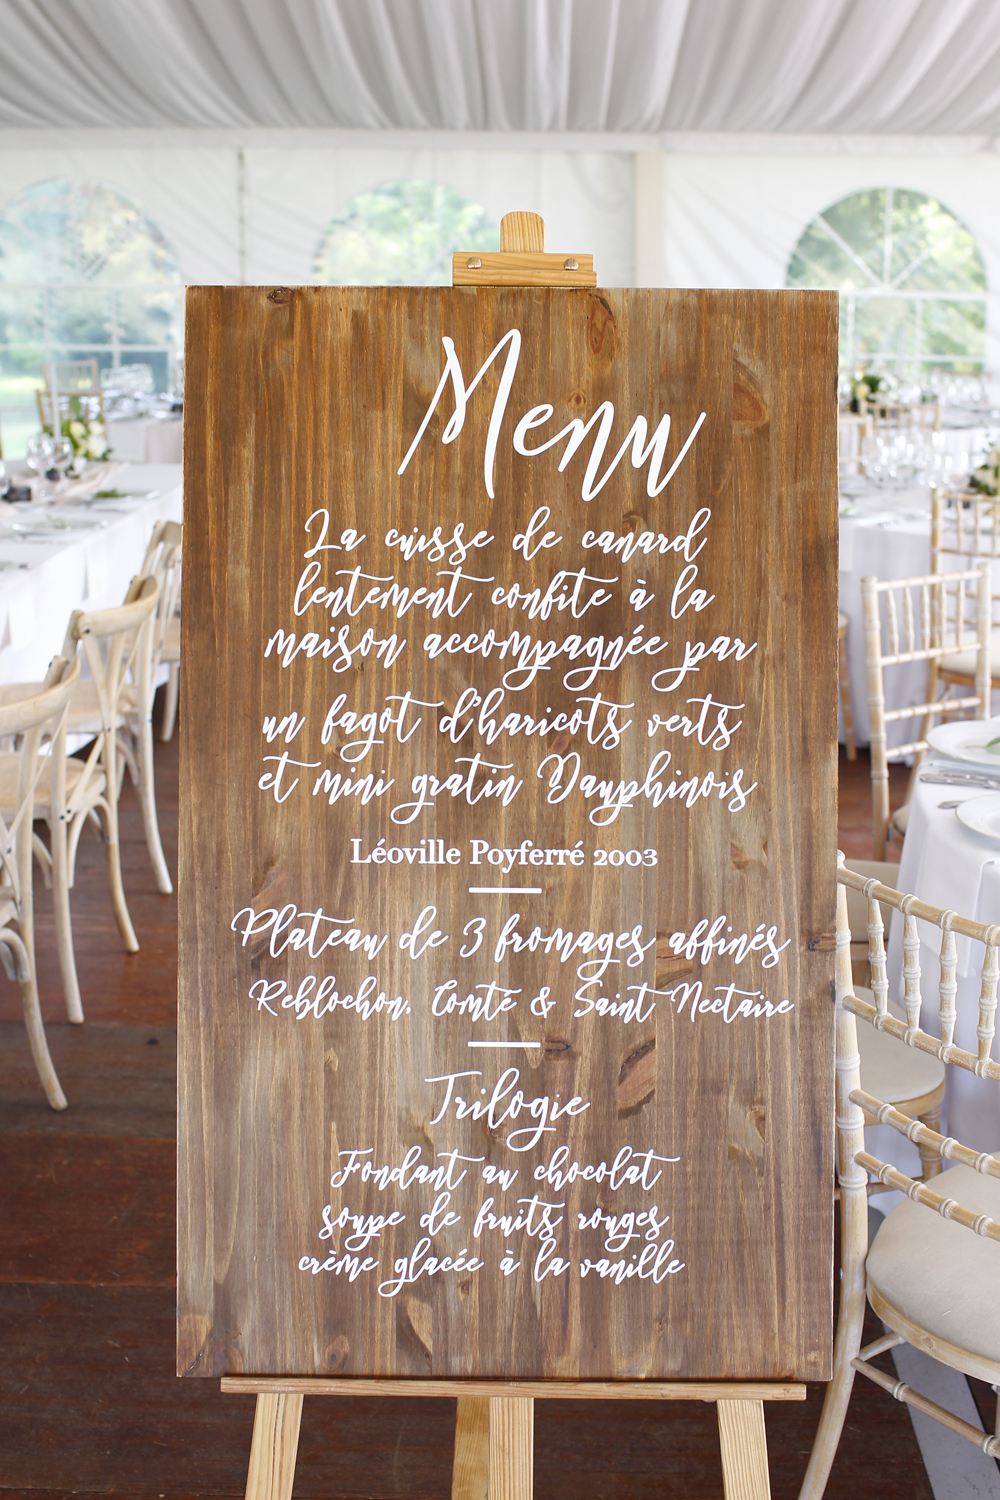 Menu
La cuisse de canard
lentement confite à la
maison accompagnée par
un fagot d'haricots verts
et mini gratin Dauphinois
Léoville Poyferré 2003
Plateau de 3 fromages affinés
Reblochon, Comté & Saint Nectaire
Trilogie
Fondant au chocolat
soupe de fruits rouges
crème glacée à la vanille